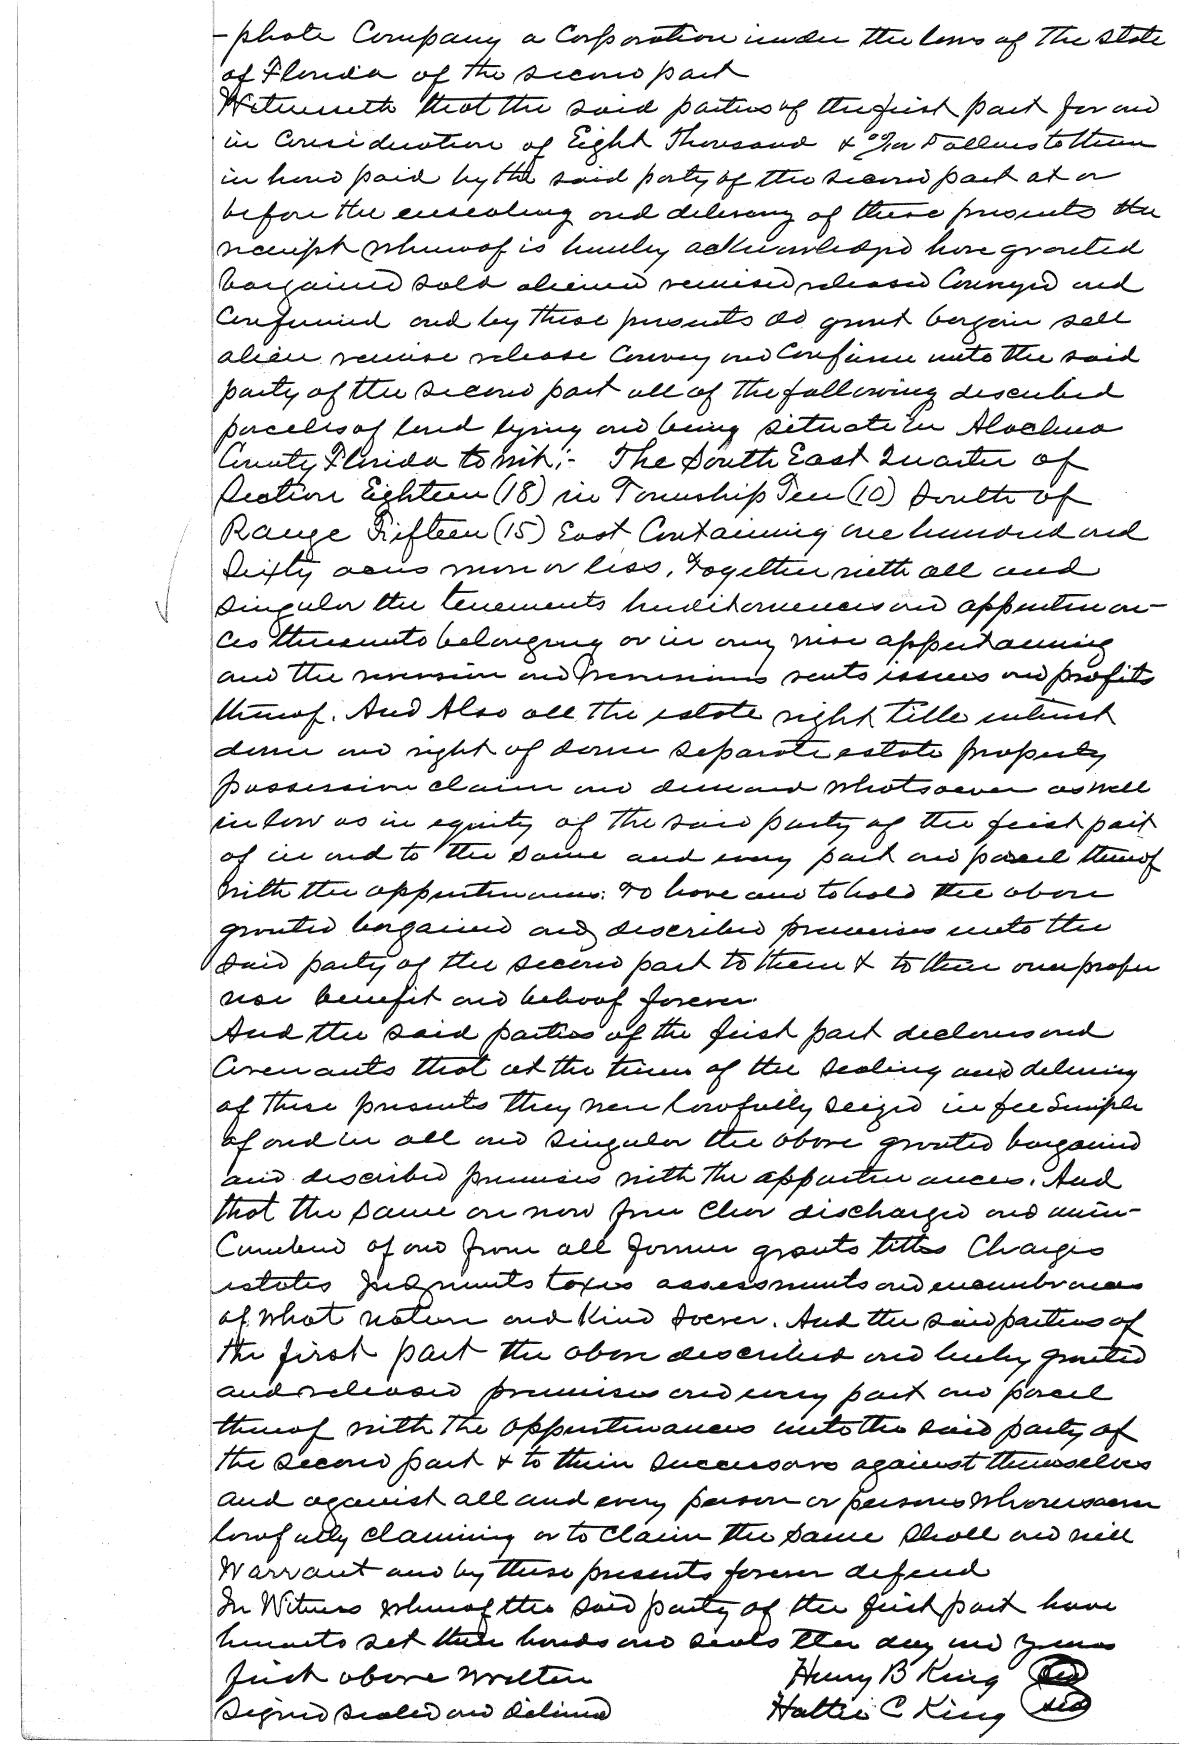 -phate Company a Corporation under the laws of the State
of Florida of the second part
Witnesseth that the said parties of the first part for and
in Consideration of Eight Thousand & 00/100 Dollars to them
in hand paid by the said party of the second part at or
before the ensealing and delivery of these presents the
receipt whereof is hereby acknowledged have granted
bargained sold aliened remised released Conveyed and
Confirmed and by these presents do grant bargain sell
alien remise release Convey and Confirm unto the said
party of the second part all of the following described
parcels of land lying and being situate in Alachua
County Florida to wit;- The South East Quarter of
Section Eighteen (18) in Township Ten (10) South of
Range Fifteen (15) East Containing one hundred and
Sixty acres more or less, Together with all and
singular the tenements hereditaments and appurtenan-
ces thereunto belonging or in any wise appertaining
and the reversion and remainders rents issues and profits
thereof. And Also all the estate right title interest
dower and right of dower separate estate property
possession claim and demand whatsoever as well
in law as in equity of the said party of the first part
of in and to the same and every part and parcel thereof
with the appurtenances. To have and to hold the above
granted bargained and described premises unto the
said party of the second part to them & to their own proper
use benefit and behoof forever.
And the said parties of the first part declares and
Covenants that at the time of the sealing and delivery
of these presents they were lawfully seized in fee Simple
of and in all and singular the above granted bargained
and described premises with the appurtenances. And
that the same are now free clear discharged and unin-
Cumbered of and from all former grants titles Charges
estates Judgments taxes assessments and encumbrances
of what nature and Kind soever. And the said parties of
the first part the above described and hereby granted
and released premises and every part and parcel
thereof with the appurtenances unto the said party of
the second part & to their successors against themselves
and against all and every person or persons whomsoever
lawfully claiming or to claim the same shall and will
Warrant and by these presents forever defend
In Witness whereof the said party of the first part have
hereunto set their hands and seals the day and year
first above written Henry B King Seal
Signed sealed and delivered Hattie C King Seal